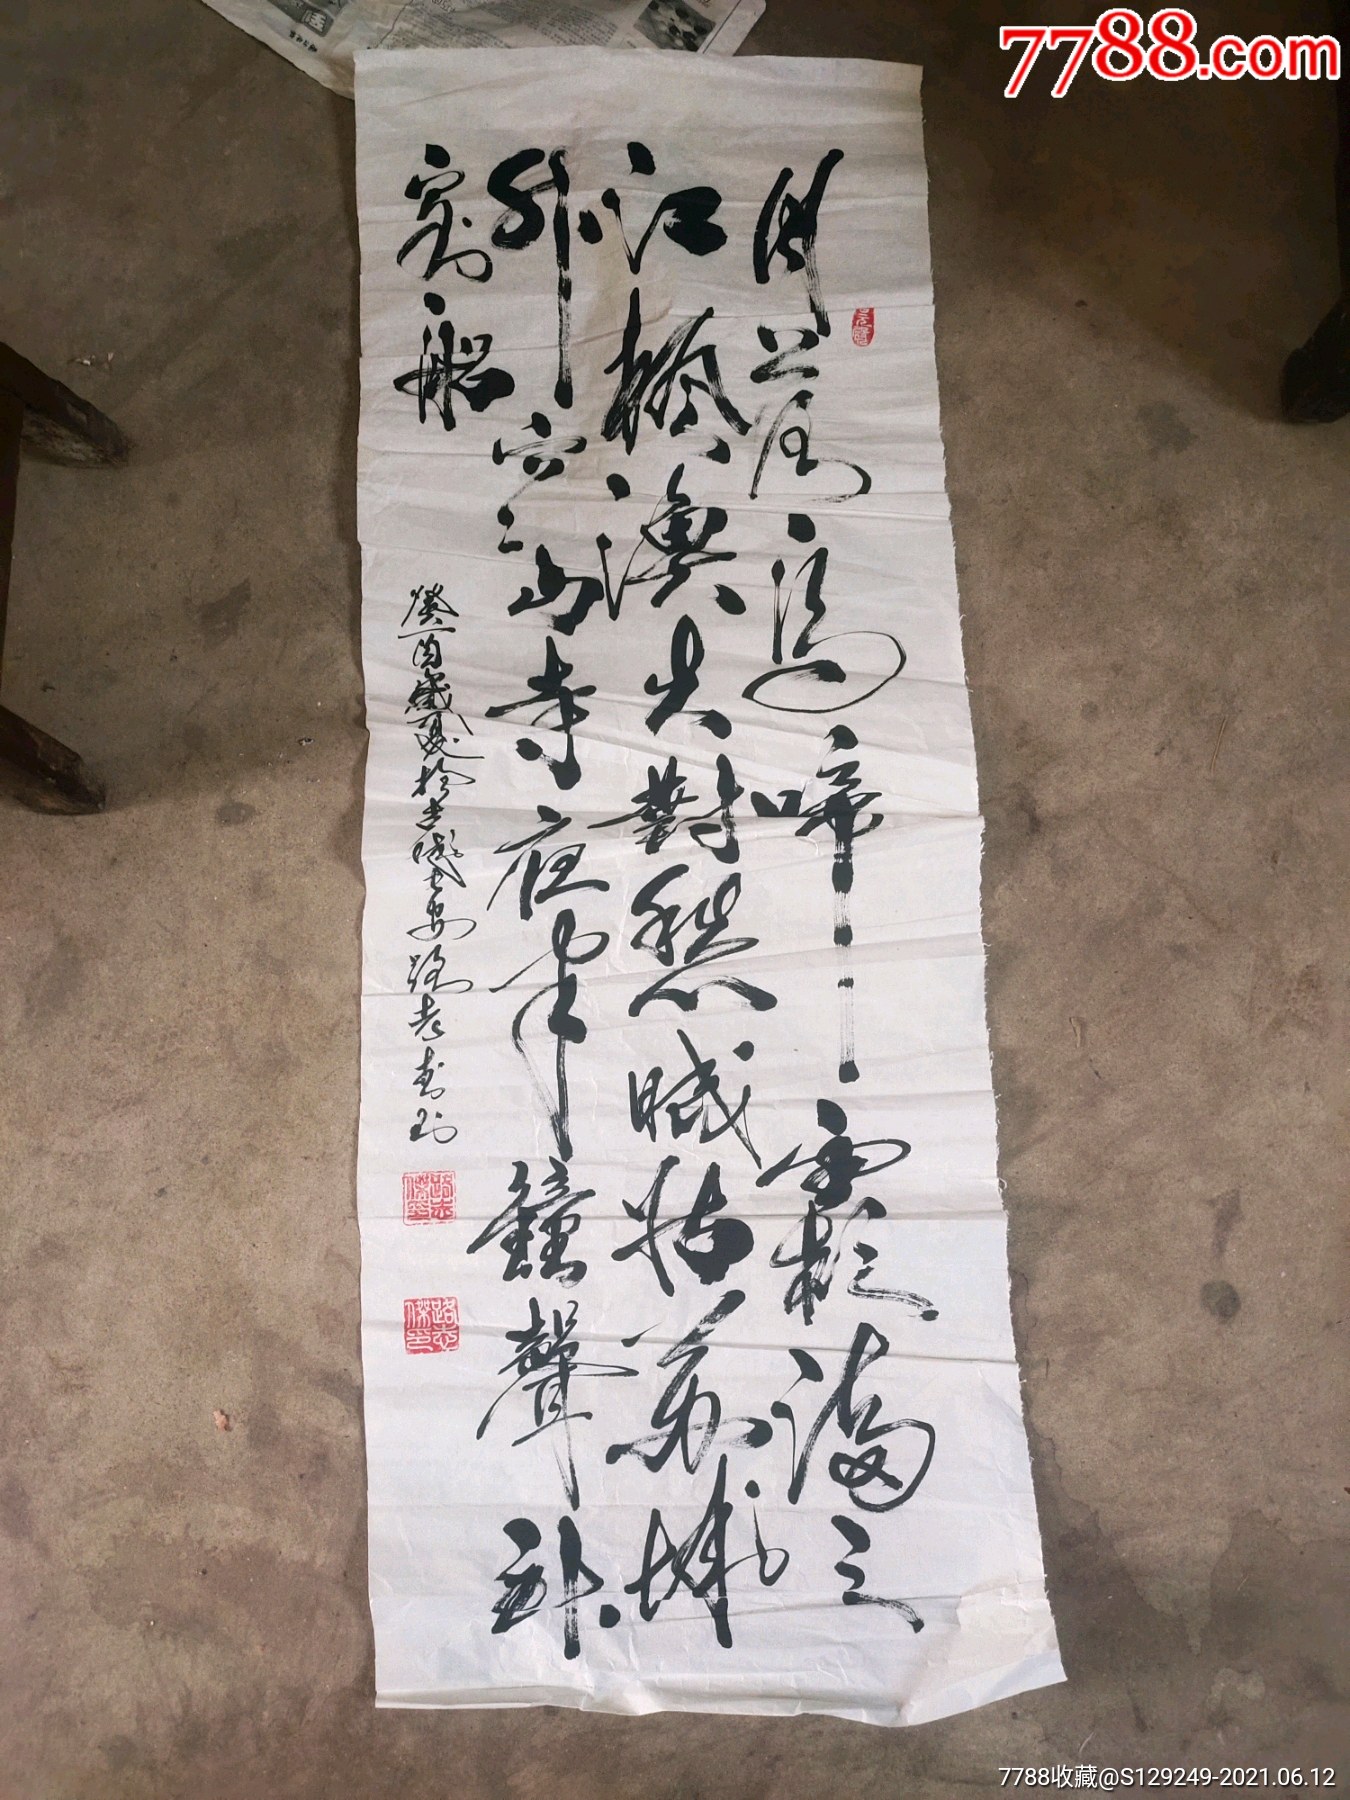 7788.com
月落烏啼霜滿天
江楓漁火對愁眠姑蘇城
外寒山寺夜半鐘聲到
客船
癸酉歲夏於古城長安路
路志傑印
路志傑印
7788收藏@S129249-2021.06.12